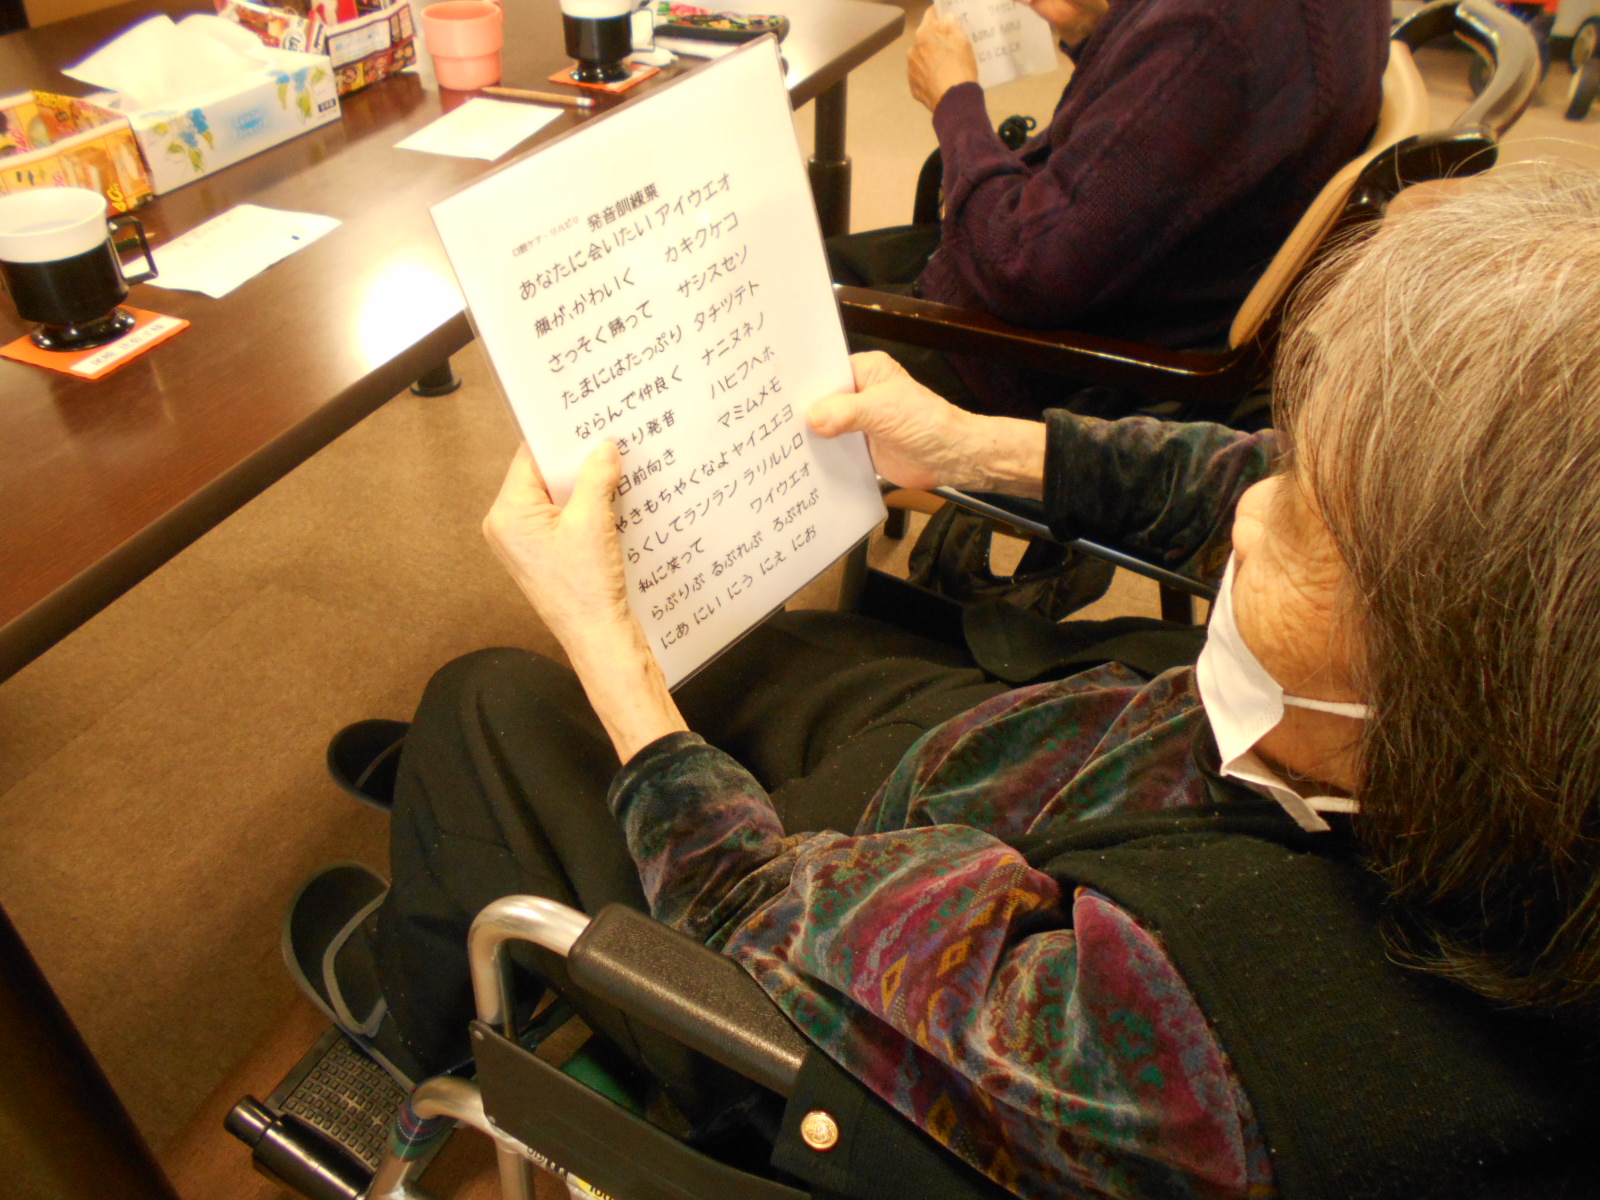 口腔ケア・リハビリ 発音訓練票
あなたに会いたい アイウエオ
顔が、かわいく カキクケコ
さっそく誘って サシスセソ
たまにはたっぷり タチツテト
ならんで仲良く ナニヌネノ
きり発音 ハヒフヘホ
日前向き マミムメモ
やきもちやくなよ ヤイユエヨ
らくしてランラン ラリルレロ
私に笑って ワイウエオ
らぷりぷ るぷれぷ ろぷれぷ
にあ にい にう にえ にお